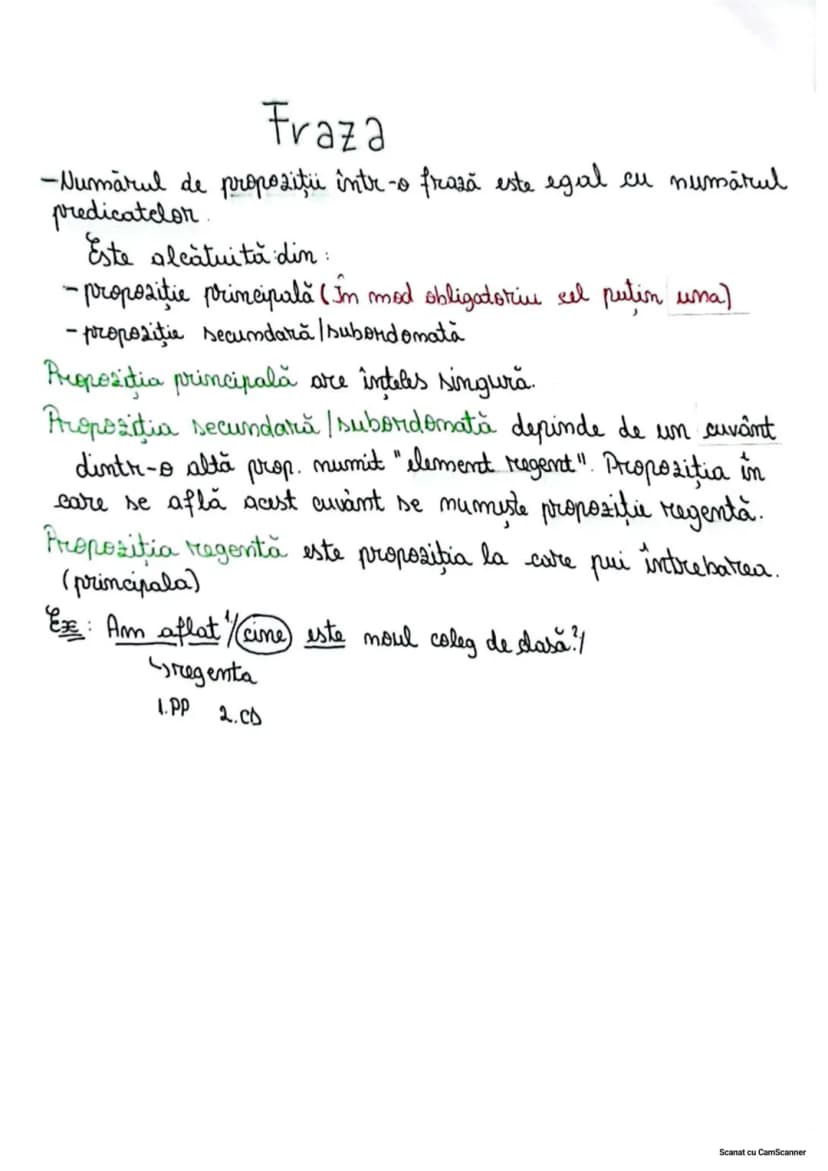 Fraza
-Numărul de propoziții într-o frază este egal cu numărul
predicatelor.
Este alcătuită din:
- propoziție principală (În mod obligatoriu cel puțin una)
- propoziție secundară/subordonată
Propoziția principală are înțeles singură.
Propoziția secundară/subordonată depinde de un cuvânt
dintr-o altă prop. numit "element regent". Propoziția în
care se află acest cuvânt se numește propoziție regentă.
Propoziția regentă este propoziția la care pui întrebarea.
(principala)
Ex: Am aflat ¹/ cine este noul coleg de clasă.²/
↳regenta
1.PP 2.CD
Scanat cu CamScanner